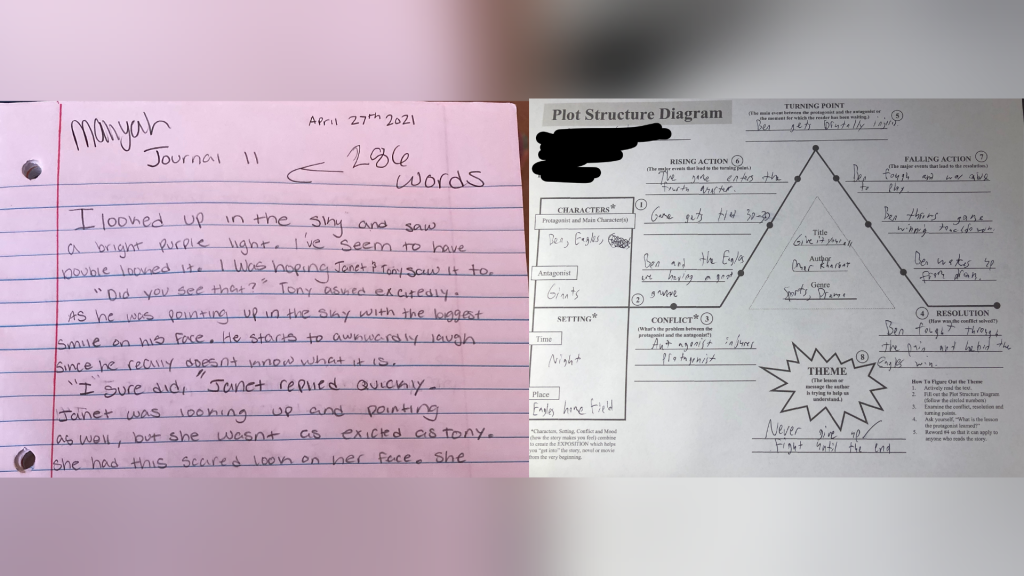 Maiyah
April 27th 2021
Journal 11
286
words
I looked up in the sky and saw
a bright purple light. I've seem to have
double looked it. I was hoping Janet & Tony saw it to.
"Did you see that?" Tony asked excitedly.
As he was pointing up in the sky with the biggest
smile on his face. He starts to awkwardly laugh
since he really doesnt know what it is.
"I sure did," Janet replied quickly.
Janet was looking up and pointing
as well, but she wasnt as exicted as Tony.
She had this scared look on her face. She
Plot Structure Diagram
TURNING POINT
(The main event between the protagonist and the antagonist or
the moment for which the reader has been waiting.) 5
Ben gets brutally
RISING ACTION 6
(The major events that lead to the turning point.)
The game enters the
fourth quarter.
Game gets tied 30-30
Ben and the Eagles
are having a great
game
FALLING ACTION 7
(The major events that lead to the resolution.)
Ben
to play
Ben throws game
winning
Ben wakes up
from
CHARACTERS* 1
Protagonist and Main Character(s)
Ben, Eagles,
Antagonist
Giants
2
SETTING*
Time
Night
Place
Eagles home field
Title
Give it your all
Author
Genre
Sports, Drama
CONFLICT* 3
(What's the problem between the
protagonist and the antagonist?)
Antagonist injures
Protagonist
4 RESOLUTION
(How was the conflict solved?)
Ben fought through
the pain and helped the
Eagles win.
8
THEME
(The lesson or
message the author
is trying to help us
understand.)
Never give up/
Fight until the end
How To Figure Out the Theme
1. Actively read the text.
2. Fill out the Plot Structure Diagram
(follow the circled numbers)
3. Examine the conflict, resolution and
turning points.
4. Ask yourself, "What is the lesson
the protagonist learned?"
5. Reword #4 so that it can apply to
anyone who reads the story.
*Characters, Setting, Conflict and Mood
(how the story makes you feel) combine
to create the EXPOSITION which helps
you "get into" the story, novel or movie
from the very beginning.